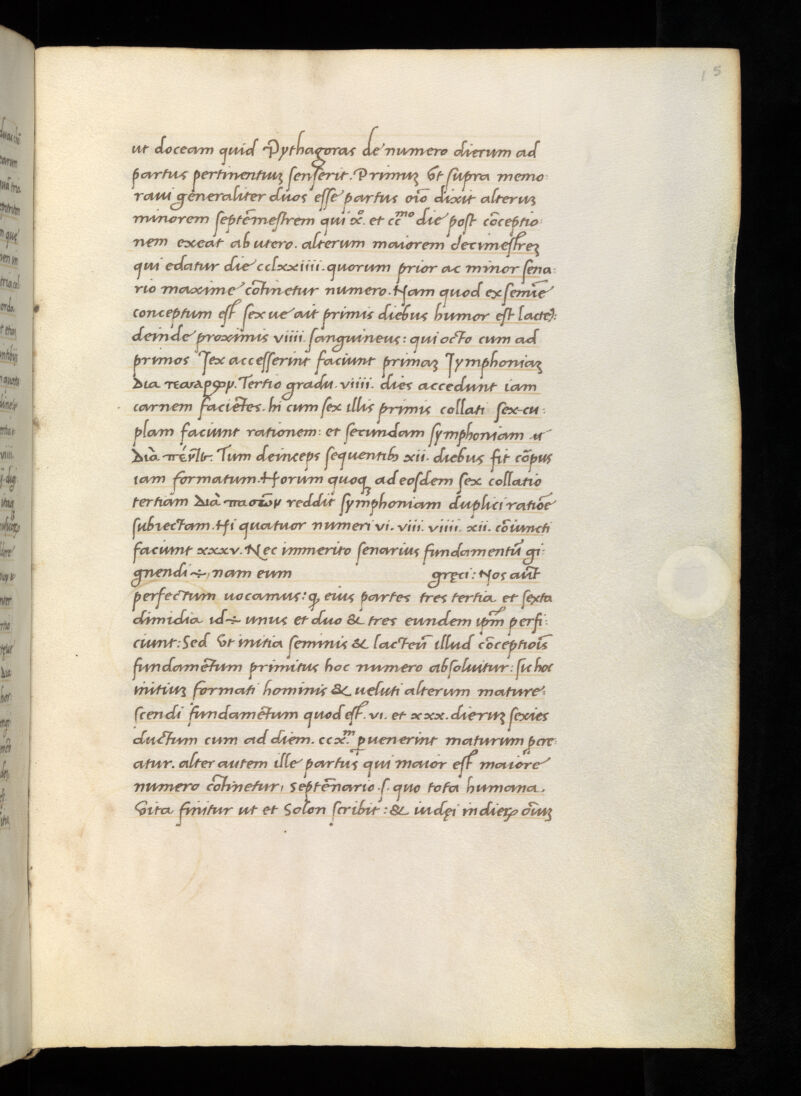 15
ut doceam quid Pythagoras de numero dierum ad
partus pertinentiuꝫ senserit. Primuꝫ Vt supra memo
raui generaliter duos esse partus oīo dixit alteruꝫ
minorem septēmestrem qui xº. et ccᵐᵒ die post cōceptio
nem exeat ab utero. alterum maiorem decimestreꝫ
qui edatur die cclxxiiii. quorum prior ac minor sena
rio maxime cōtinetur numero. Nam quod ex semīe
conceptum est sex ue ait primis diebus humor est lacteꝰ:
deinde proximis viiii. sanguineus: qui octo cum ad
primos sex accesserint faciunt primaꝫ symphoniaꝫ
δια τεσαρων. Tertio gradu. viiii. dies accedunt iam
carnem faciētes. hi cum sex illis primis collati sex cu
plam faciunt rationem: et secundam symphoniam
διὰ πέντε. Tum deinceps sequentibꝫ xii. diebus fit cōpus
iam formatum. Horum quoqꝫ ad eosdem sex collatio
tertiam διὰ πασῶν reddit symphoniam duplici ratiōe
subiectam. Hi quatuor numeri vi. viii. viiii. xii. cōiuncti
faciunt xxxv. Nec immerito senarius fundamentū gi
gnendi ÷, nam eum gręci: Nos aūt
perfectum uocamus: ꝙ eius partes tres tertia et sexta
dimidia id ÷ unus et duo & tres eundem ipm̄ perfi
ciunt: Sed Vt initia seminis & lacteū illud cōceptiois
fundamētum primitus hoc numero absoluitur: sic hoc
initiuꝫ formati hominis & ueluti alterum mature
scendi fundamētum quod est. vi. et xxx. dieruꝫ sexies
ductum cum ad diem. ccxᵐ ꝑuenerint maturum ꝓcre
atur. alter autem ille partus qui maior est maiore
numero cōtinetur, septēnario .s. quo tota humana.
Vita finitur ut et Solon scribit: & iudęi in dieꝝ oīuꝫ